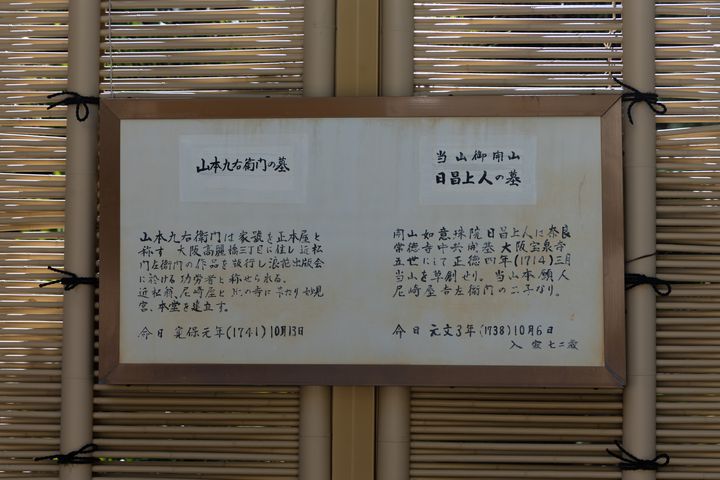 山本九右衛門の墓
山本九右衛門は家號を正本屋と
称す 大阪高麗橋三丁目に住し近松
門左衛門の作品を板行し浪花出版会
に於ける功労者と称せらる。
近松翁、尼崎屋と の寺に 妙見
宮、本堂を建立す。
命日 寛保元年(1741)10月13日
当山御開山
日昌上人の墓
開山如意珠院日昌上人は奈良
常徳寺中興開基 大阪宝泉寺
五世にして正徳四年(1714)三月
当山を草創せり。当山本願人
尼崎屋吉左衛門の二子なり。
命日 元文3年(1738)10月6日
七二歳